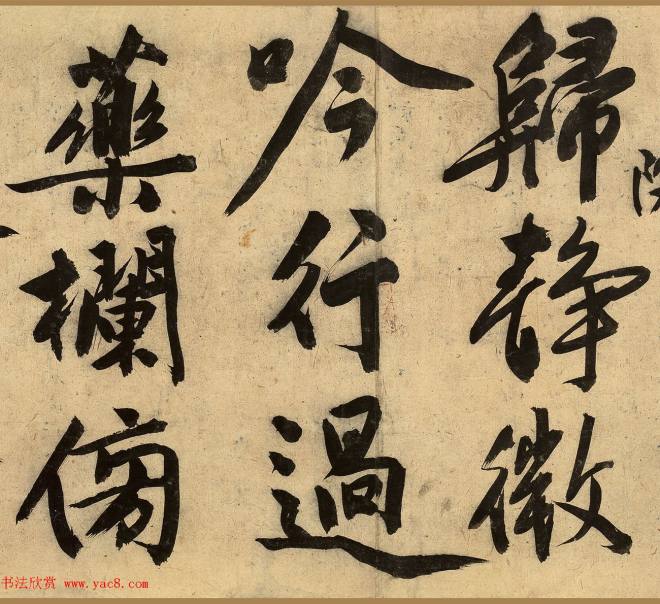 歸静微
吟行過
藥欄傍
书法欣赏 www.yac8.com